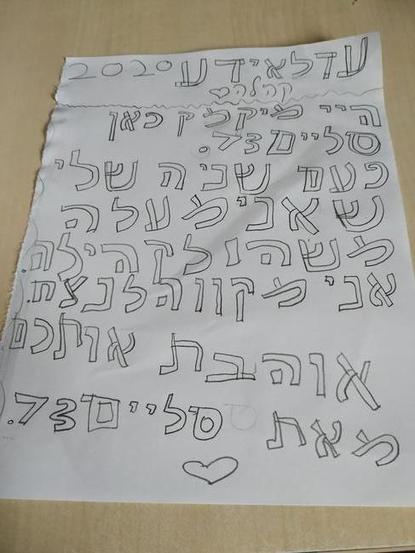 עדלאידע 2020
קהלה♡
היי מיקמק כאן
סליים73.
פעם שניה שלי
שאני מעלה
משהו לקהילה.
אני מקווה לנצח.
אוהבת אותכם
מאת סליים73.